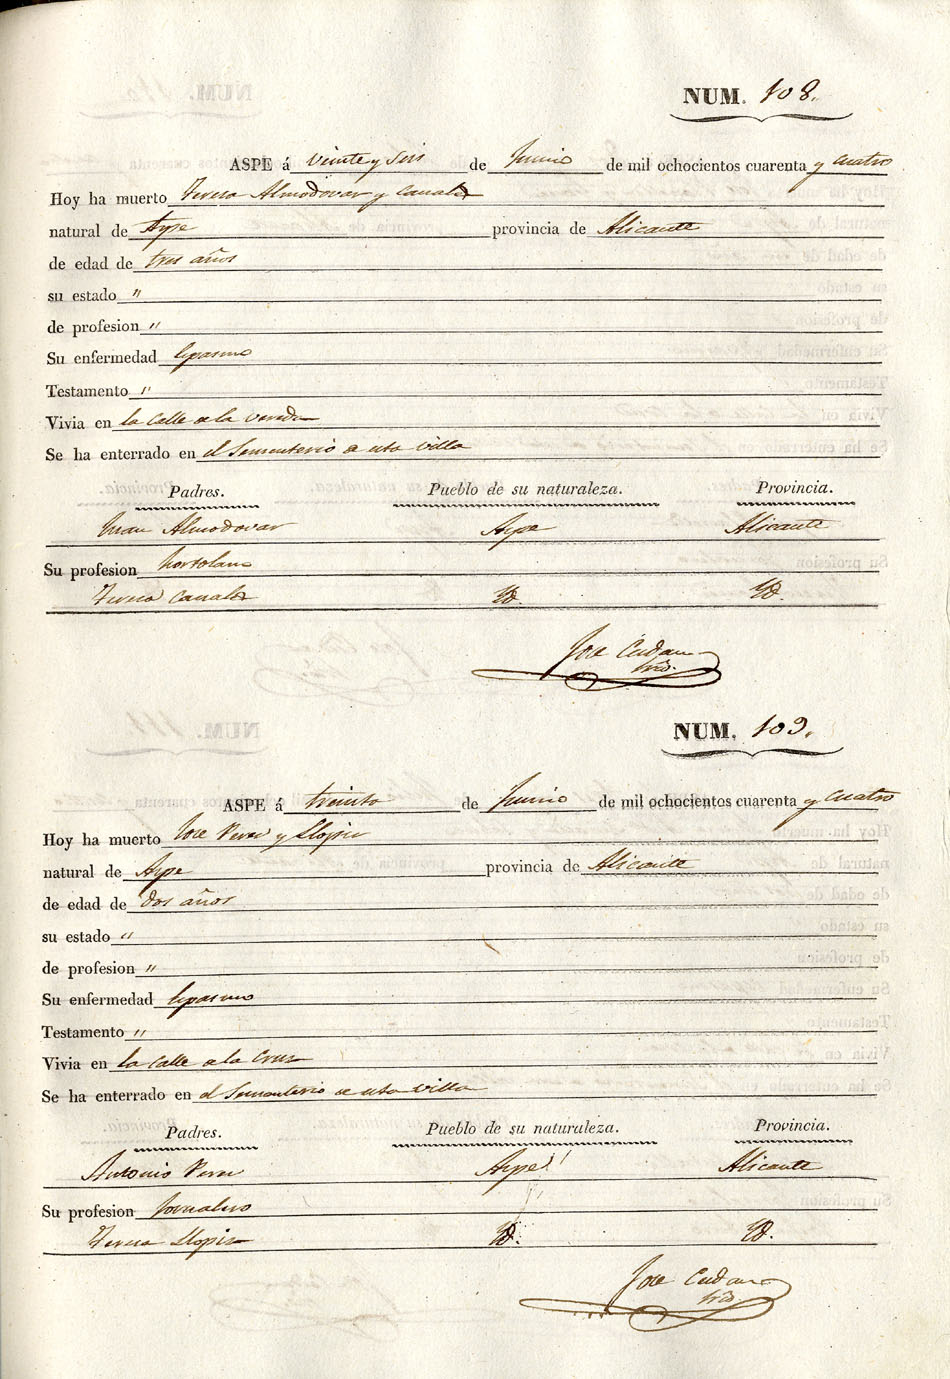 NUM. 108.
ASPE á veinte y seis de Junio de mil ochocientos cuarenta y cuatro
Hoy ha muerto Teresa Almodovar y Canals
natural de Aspe provincia de Alicante
de edad de tres años
su estado "
de profesion "
Su enfermedad Espasmo
Testamento "
Vivia en la calle de la vereda
Se ha enterrado en el Sementerio de esta villa
Padres. Pueblo de su naturaleza. Provincia.
Almodovar Aspe Alicante
Su profesion hortolano
Teresa Canals Yd. Yd.
Jose
NUM. 109.
ASPE á treinta de Junio de mil ochocientos cuarenta y cuatro
Hoy ha muerto Jose Perez y Llopiz
natural de Aspe provincia de Alicante
de edad de dos años
su estado "
de profesion "
Su enfermedad Espasmo
Testamento "
Vivia en la calle de la Cruz
Se ha enterrado en el Sementerio de esta villa
Padres. Pueblo de su naturaleza. Provincia.
Antonio Perez Aspe Alicante
Su profesion Jornalero
Teresa Llopiz Yd. Yd.
Jose